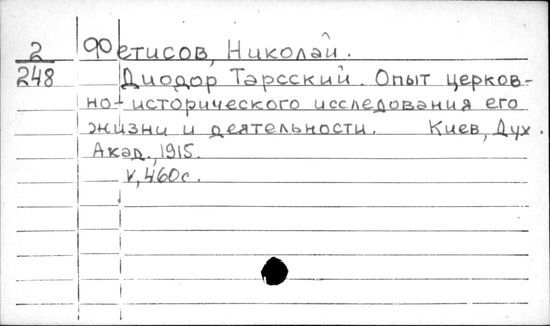 2 Фетисов, Николай.
248 Диодор Тарсский. Опыт церков-
но-исторического исследования его
жизни и деятельности. Киев, Дух.
Акад., 1915.
V, 460с.